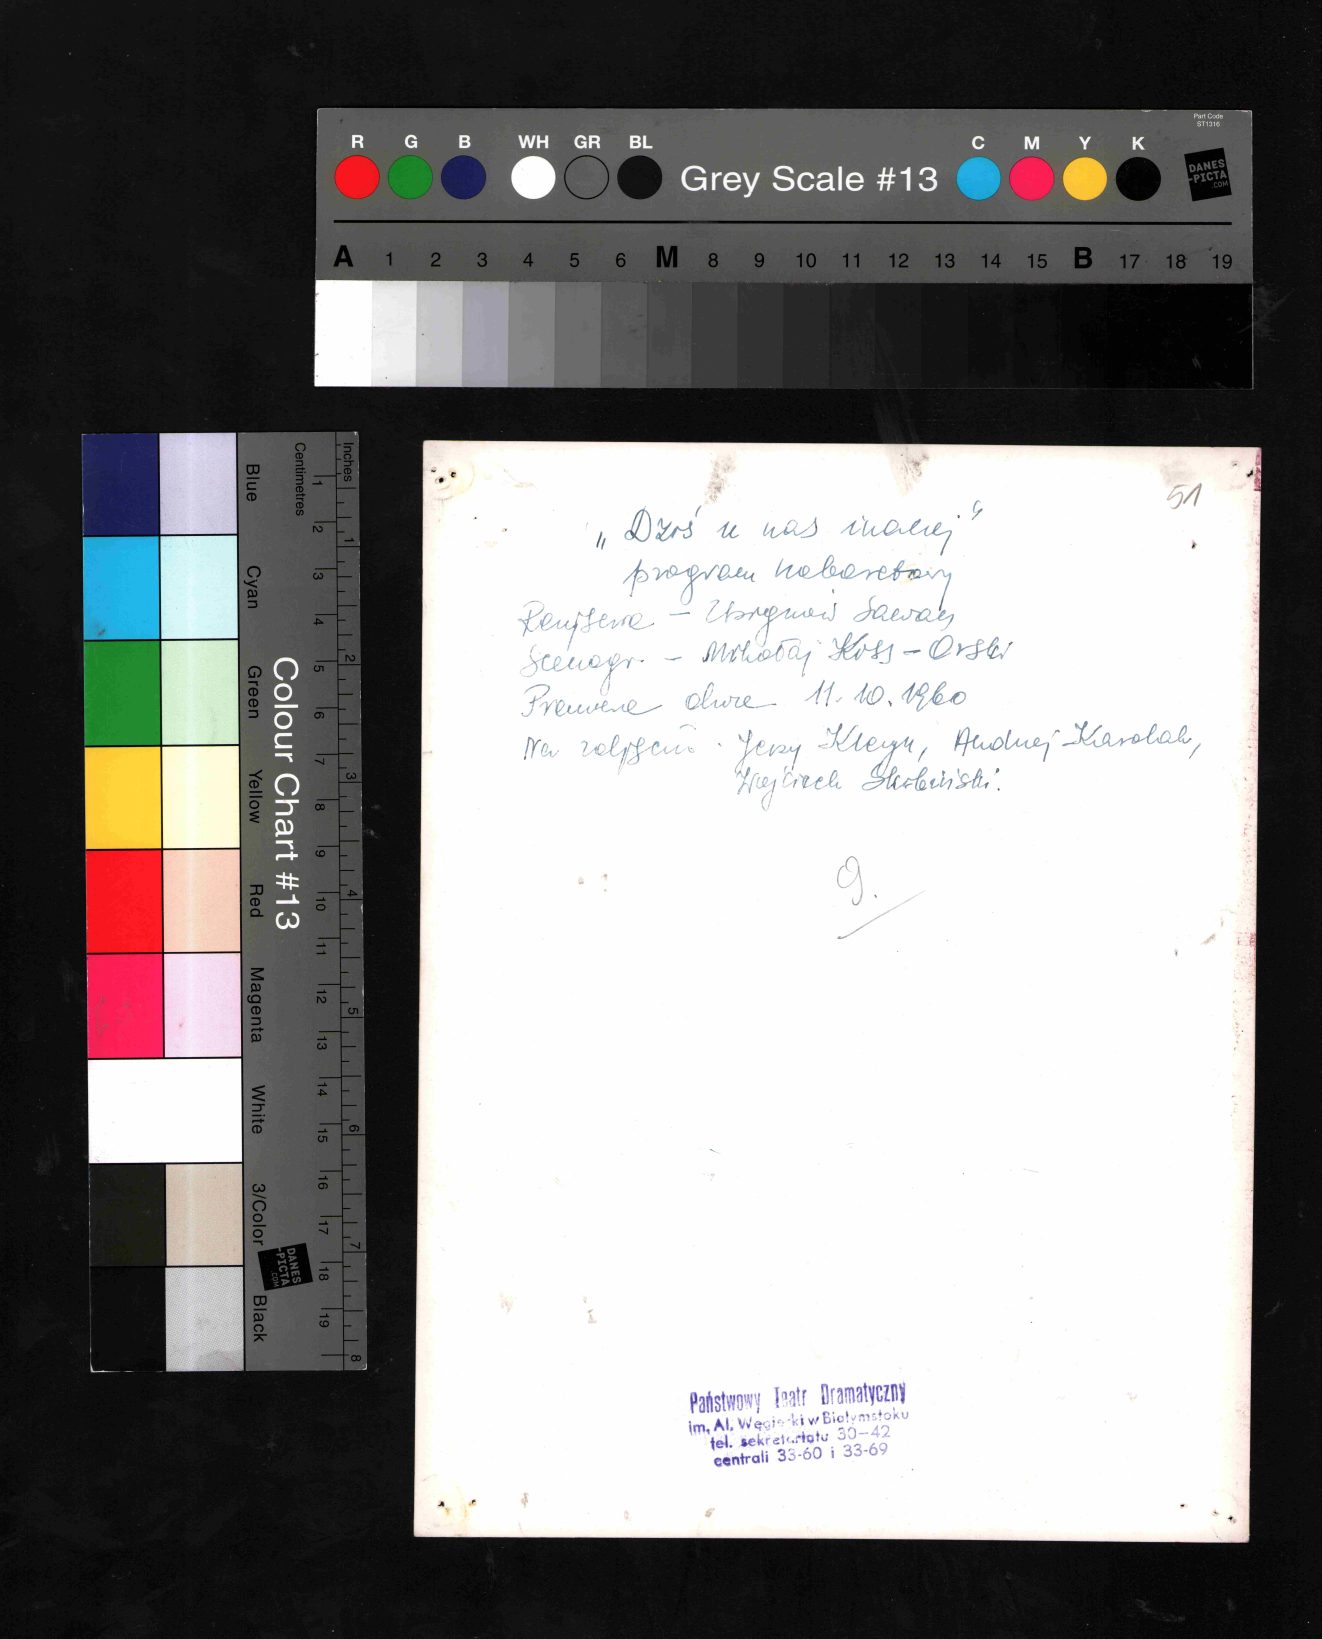 Part Code
ST1316
R G B WH GR BL Grey Scale #13 C M Y K
DANES
-PICTA
.COM
A 1 2 3 4 5 6 M 8 9 10 11 12 13 14 15 B 17 18 19
Colour Chart #13
Blue Cyan Green Yellow Red Magenta White 3/Color Black
Centimetres 1 2 3 4 5 6 7 8 9 10 11 12 13 14 15 16 17 18 19
Inches 1 2 3 4 5 6 7 8
DANES
-PICTA
.COM
51
„Dziś u nas inaczej"
program kabaretowy
Reżyseria – Zbigniew Sawan
Scenogr. – Mikołaj Koss-Orski
Premiera dnia 11.10.1960
Na zdjęciu: Jerzy Kleyn, Andrzej Karolak,
Wojciech Skibiński.
9.
Państwowy Teatr Dramatyczny
im. Al. Węgierki w Białymstoku
tel. sekretariatu 30-42
centrali 33-60 i 33-69